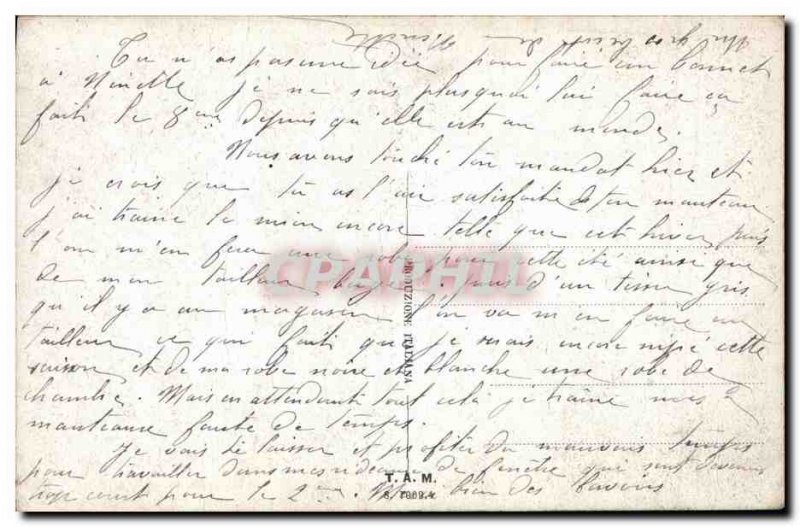 Tu n'as pas une idée pour faire un bonnet
à Ninette je ne sais plus quoi lui faire ça
fait le 8eme depuis qu'elle est au monde.
Nous avons touché ton mandat hier et
je crois que tu as l'air satisfaite de ton manteau
j'ai traîné le mien encore telle que cet hiver, puis
l'on m'en fera une robe pour cette été ainsi que
de mon tailleur beige. Je puis d'un tissu gris
qu'il y a au magasin l'on va m'en faire un
tailleur ce qui fait que je serais encore nippé cette
saison et de ma robe noire et blanche une robe de
chambre. Mais en attendant tout cela je traîne mes
manteaux faute de temps.
Je vais te laisser et profiter du mauvais temps
pour travailler dans mes rideaux de fenêtre qui sont devenus
trop court pour le 2eme. bien des
Un gros de Ninette
CPAPHIL
PRODUZIONE ITALIANA
T. A. M.